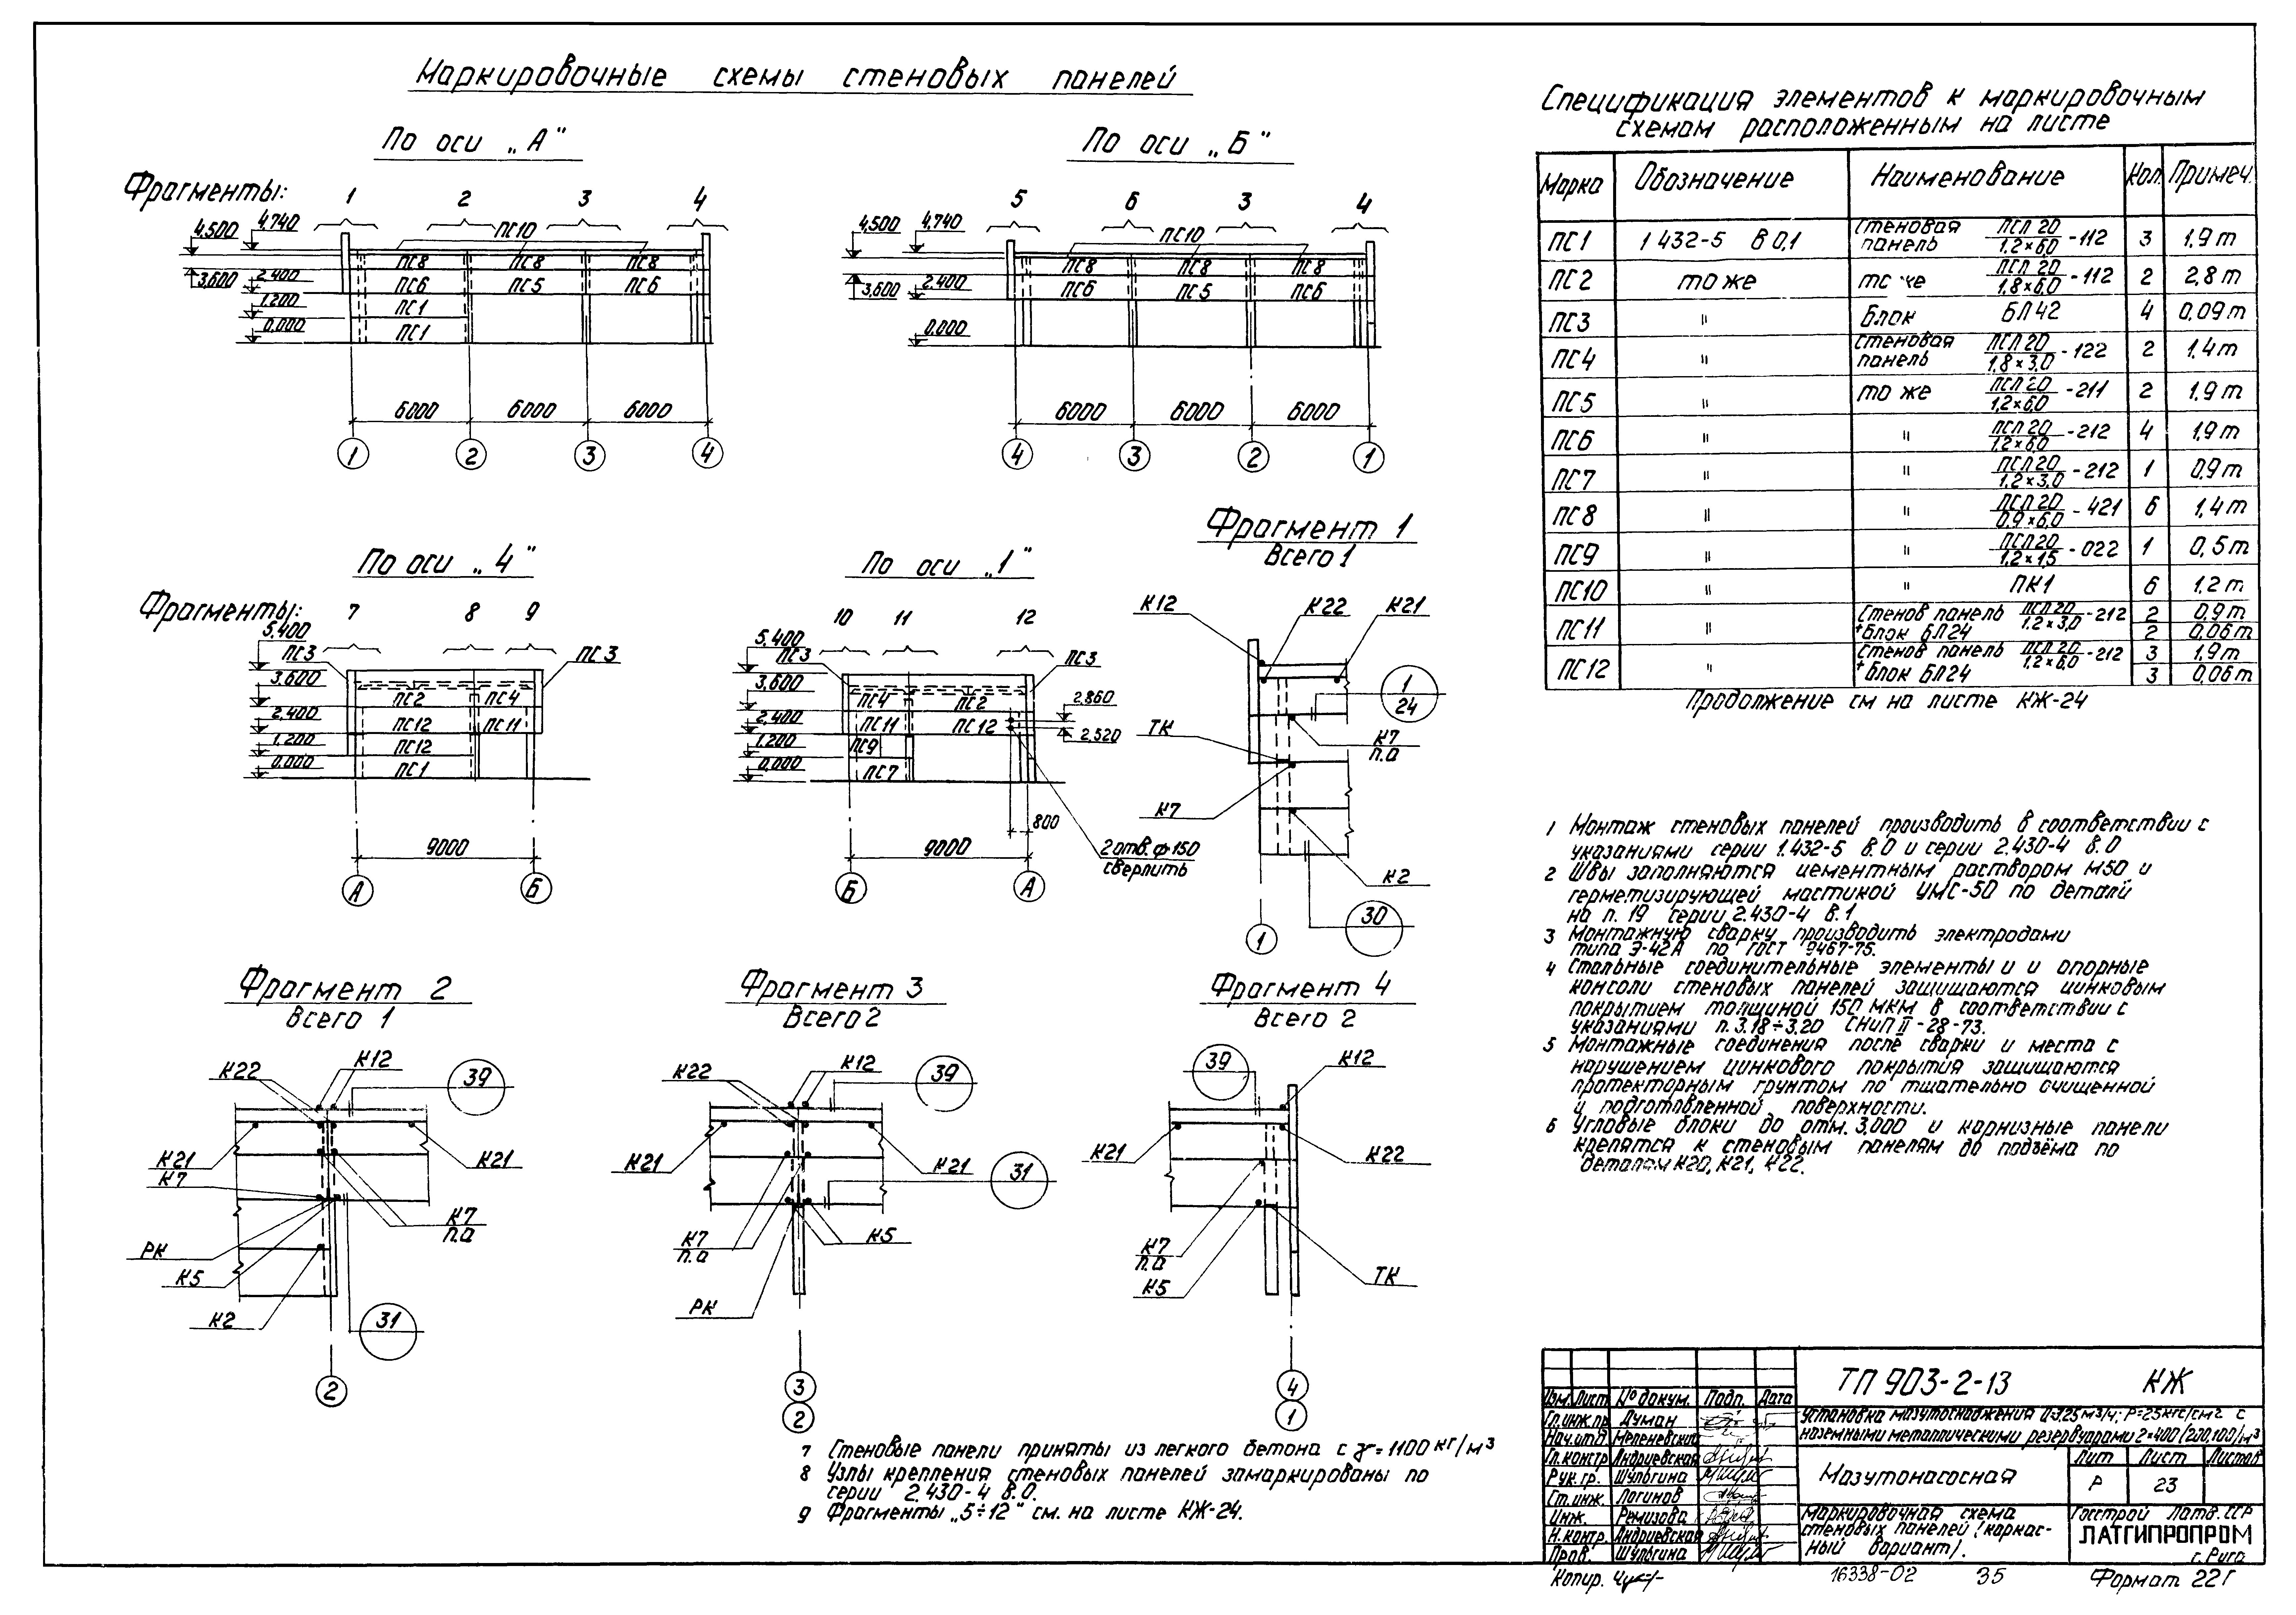 Маркировочные схемы стеновых панелей
По оси „А"
По оси „Б"
Фрагменты: 1 2 3 4
5 6 3 4
4,500 4,740 ПС10
4,500 4,740 ПС10
ПС8 ПС8 ПС8
ПС8 ПС8 ПС8
3,600 2,400 ПС6 ПС5 ПС6
3,600 2,400 ПС6 ПС5 ПС6
1,200 ПС1
0,000 ПС1
0,000
6000 6000 6000
6000 6000 6000
1 2 3 4
4 3 2 1
По оси „4"
По оси „1"
Фрагменты: 7 8 9
10 11 12
5,400
ПС3 ПС3
3,600
ПС2 ПС4
2,400 ПС12 ПС11
1,200 ПС12
0,000 ПС1
9000
А Б
5,400
ПС3 ПС3
3,600
ПС4 ПС2
2,860
2,400 ПС11 ПС12
2,520
1,200 ПС9
0,000 ПС7
800
9000
2 отв. ф 150
сверлить
Б А
Фрагмент 1
Всего 1
К12 К22 К21
1
24
ТК
К7
п.а
К7
К2
30
1
Фрагмент 2
Всего 1
К22 К12 39
К21 К21
К7
К7
п.а
РК
К5
К2 31
2
Фрагмент 3
Всего 2
К22 К12 39
К21 К21 31
К7
п.а
К5
РК
3
2
Фрагмент 4
Всего 2
39 К12
К21 К22
К7
п.а
К5 ТК
4
1
Спецификация элементов к маркировочным
схемам расположенным на листе
Марка Обозначение Наименование Кол. Примеч.
ПС1 1 432-5 В 0,1 Стеновая панель ПСЛ 20/1,2×6,0-112 3 1,9 т
ПС2 то же то же ПСЛ 20/1,8×6,0-112 2 2,8 т
ПС3 " блок БЛ42 4 0,09 т
ПС4 " Стеновая панель ПСЛ 20/1,8×3,0-122 2 1,4 т
ПС5 " то же ПСЛ 20/1,2×6,0-211 2 1,9 т
ПС6 " " ПСЛ 20/1,2×6,0-212 4 1,9 т
ПС7 " " ПСЛ 20/1,2×3,0-212 1 0,9 т
ПС8 " " ПСЛ 20/0,9×6,0-421 6 1,4 т
ПС9 " " ПСЛ 20/1,2×1,5-022 1 0,5 т
ПС10 " " ПК1 6 1,2 т
ПС11 " Стенов панель ПСЛ 20/1,2×3,0-212 2 0,9 т
+блок БЛ24 2 0,06 т
ПС12 " Стенов панель ПСЛ 20/1,2×6,0-212 3 1,9 т
+блок БЛ24 3 0,06 т
Продолжение см на листе КЖ-24
1 Монтаж стеновых панелей производить в соответствии с
указаниями серии 1.432-5 В.0 и серии 2.430-4 В.0
2 Швы заполняются цементным раствором М50 и
герметизирующей мастикой УМС-50 по детали
на п. 19 серии 2.430-4 В.1
3 Монтажную сварку производить электродами
типа Э-42А по ГОСТ 9467-75.
4 Стальные соединительные элементы и и опорные
консоли стеновых панелей защищаются цинковым
покрытием толщиной 150 мкм в соответствии с
указаниями п. 3.18÷3.20 СНиП II-28-73.
5 Монтажные соединения после сварки и места с
нарушением цинкового покрытия защищаются
протекторным грунтом по тщательно очищенной
и подготовленной поверхности.
6 Угловые блоки до отм. 3,000 и карнизные панели
крепятся к стеновым панелям до подъёма по
деталям К20, К21, К22.
7 Стеновые панели приняты из легкого бетона с γ=1100 кг/м³
8 Узлы крепления стеновых панелей замаркированы по
серии 2.430-4 В.0.
9 Фрагменты „5÷12" см. на листе КЖ-24.
Изм. Лист № докум. Подп. Дата
Гл.инж.пр. Думан
Нач.отд. Меленевской
Гл.констр Андриевская
Рук. гр. Шульгина
Ст.инж. Логинов
Инж. Ремизова
Н.контр. Андриевская
Пров. Шульгина
ТП 903-2-13 КЖ
Установка мазутоснабжения Q=3,25 м3/ч; Р=25 кгс/см2 с
наземными металлическими резервуарами 2×400/200,100/м³
Мазутонасосная
Лит Лист Листов
Р 23
Маркировочная схема
стеновых панелей (каркас-
ный вариант).
Госстрой Латв. ССР
ЛАТГИПРОПРОМ
г. Рига
Копир.
16338-02 35
Формат 22Г